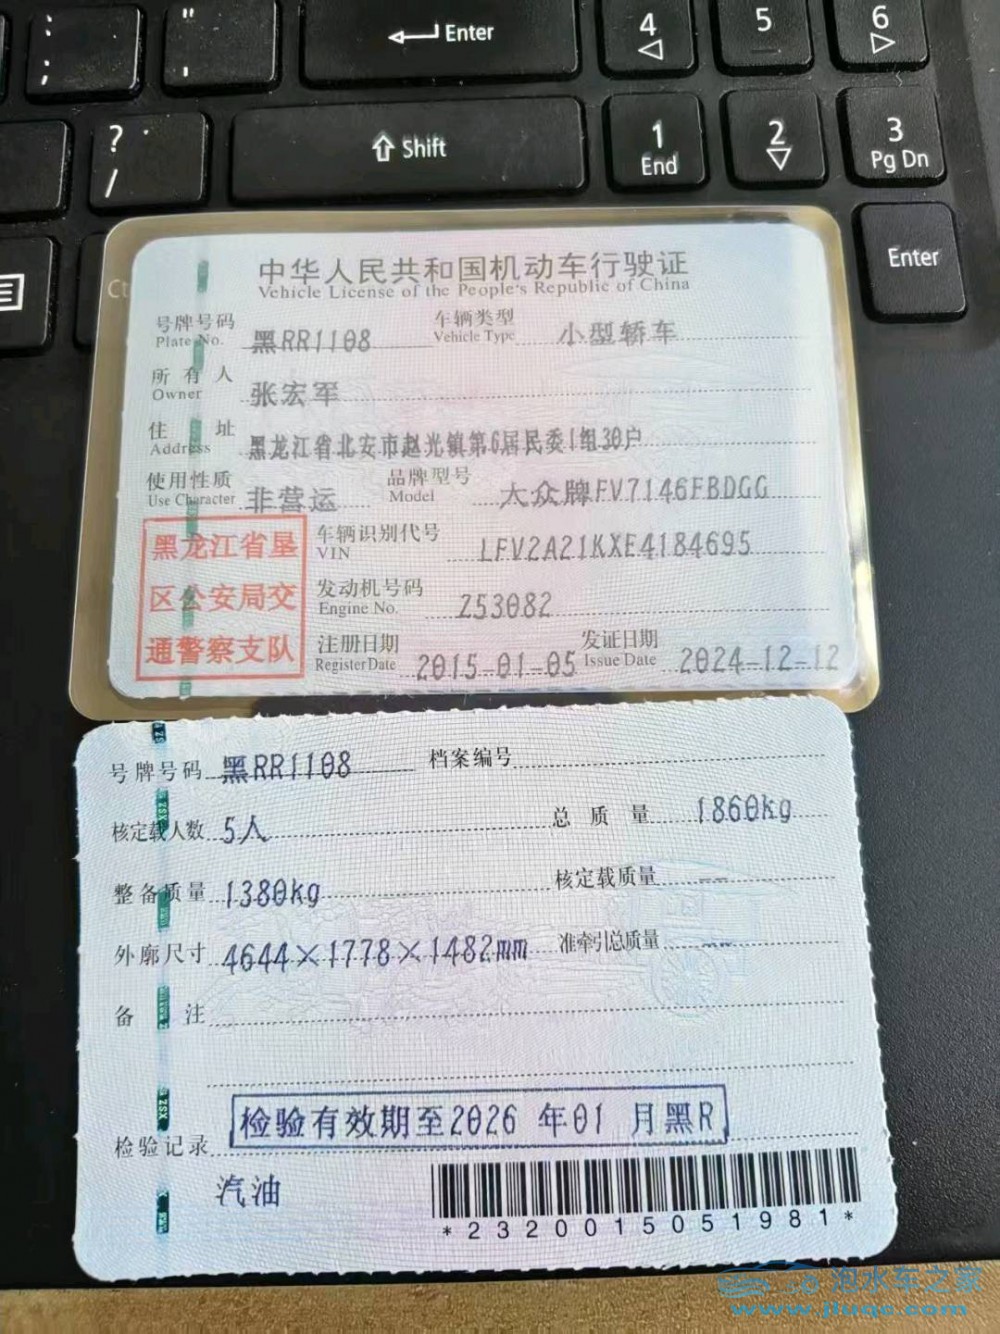 : ;
" '
Enter
4
5
6
? /
Shift
1 End
2
3 Pg Dn
Ct
Enter
中华人民共和国机动车行驶证
Vehicle License of the People's Republic of China
号牌号码 Plate No. 黑RR1108 车辆类型 Vehicle Type 小型轿车
所有人 Owner 张宏军
住址 Address 黑龙江省北安市赵光镇第6居民委1组30户
使用性质 Use Character 非营运 品牌型号 Model 大众牌FV7146FBDGG
黑龙江省垦
区公安局交
通警察支队
车辆识别代号 VIN LFV2A21KXE4184695
发动机号码 Engine No. Z53082
注册日期 Register Date 2015-01-05 发证日期 Issue Date 2024-12-12
号牌号码 黑RR1108 档案编号
核定载人数 5人 总质量 1860kg
整备质量 1380kg 核定载质量 --
外廓尺寸 4644×1778×1482mm 准牵引总质量 --
备注
检验记录 检验有效期至2026 年01 月黑R
汽油
*2320015051981*
泡水车之家
www.jluqc.com